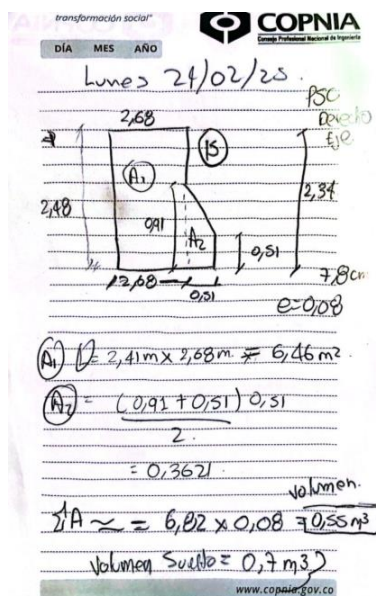 transformación social"
COPNIA
Consejo Profesional Nacional de Ingeniería
DÍA MES AÑO
Lunes 24/02/25.
PSO
Eje
2,68
15
A1
2,48
0,91
A2
0,51
2,34
2,68
0,51
7,8cm
e=0,08
A1 = 2,41m x 2,68m = 6,46m².
A2 = (0,91 + 0,51) 0,51
2.
= 0,3621.
Volumen.
ΣA ~ = 6,82 x 0,08 = 0,55m³
Volumen Suelto = 0,7m3
www.copnia.gov.co